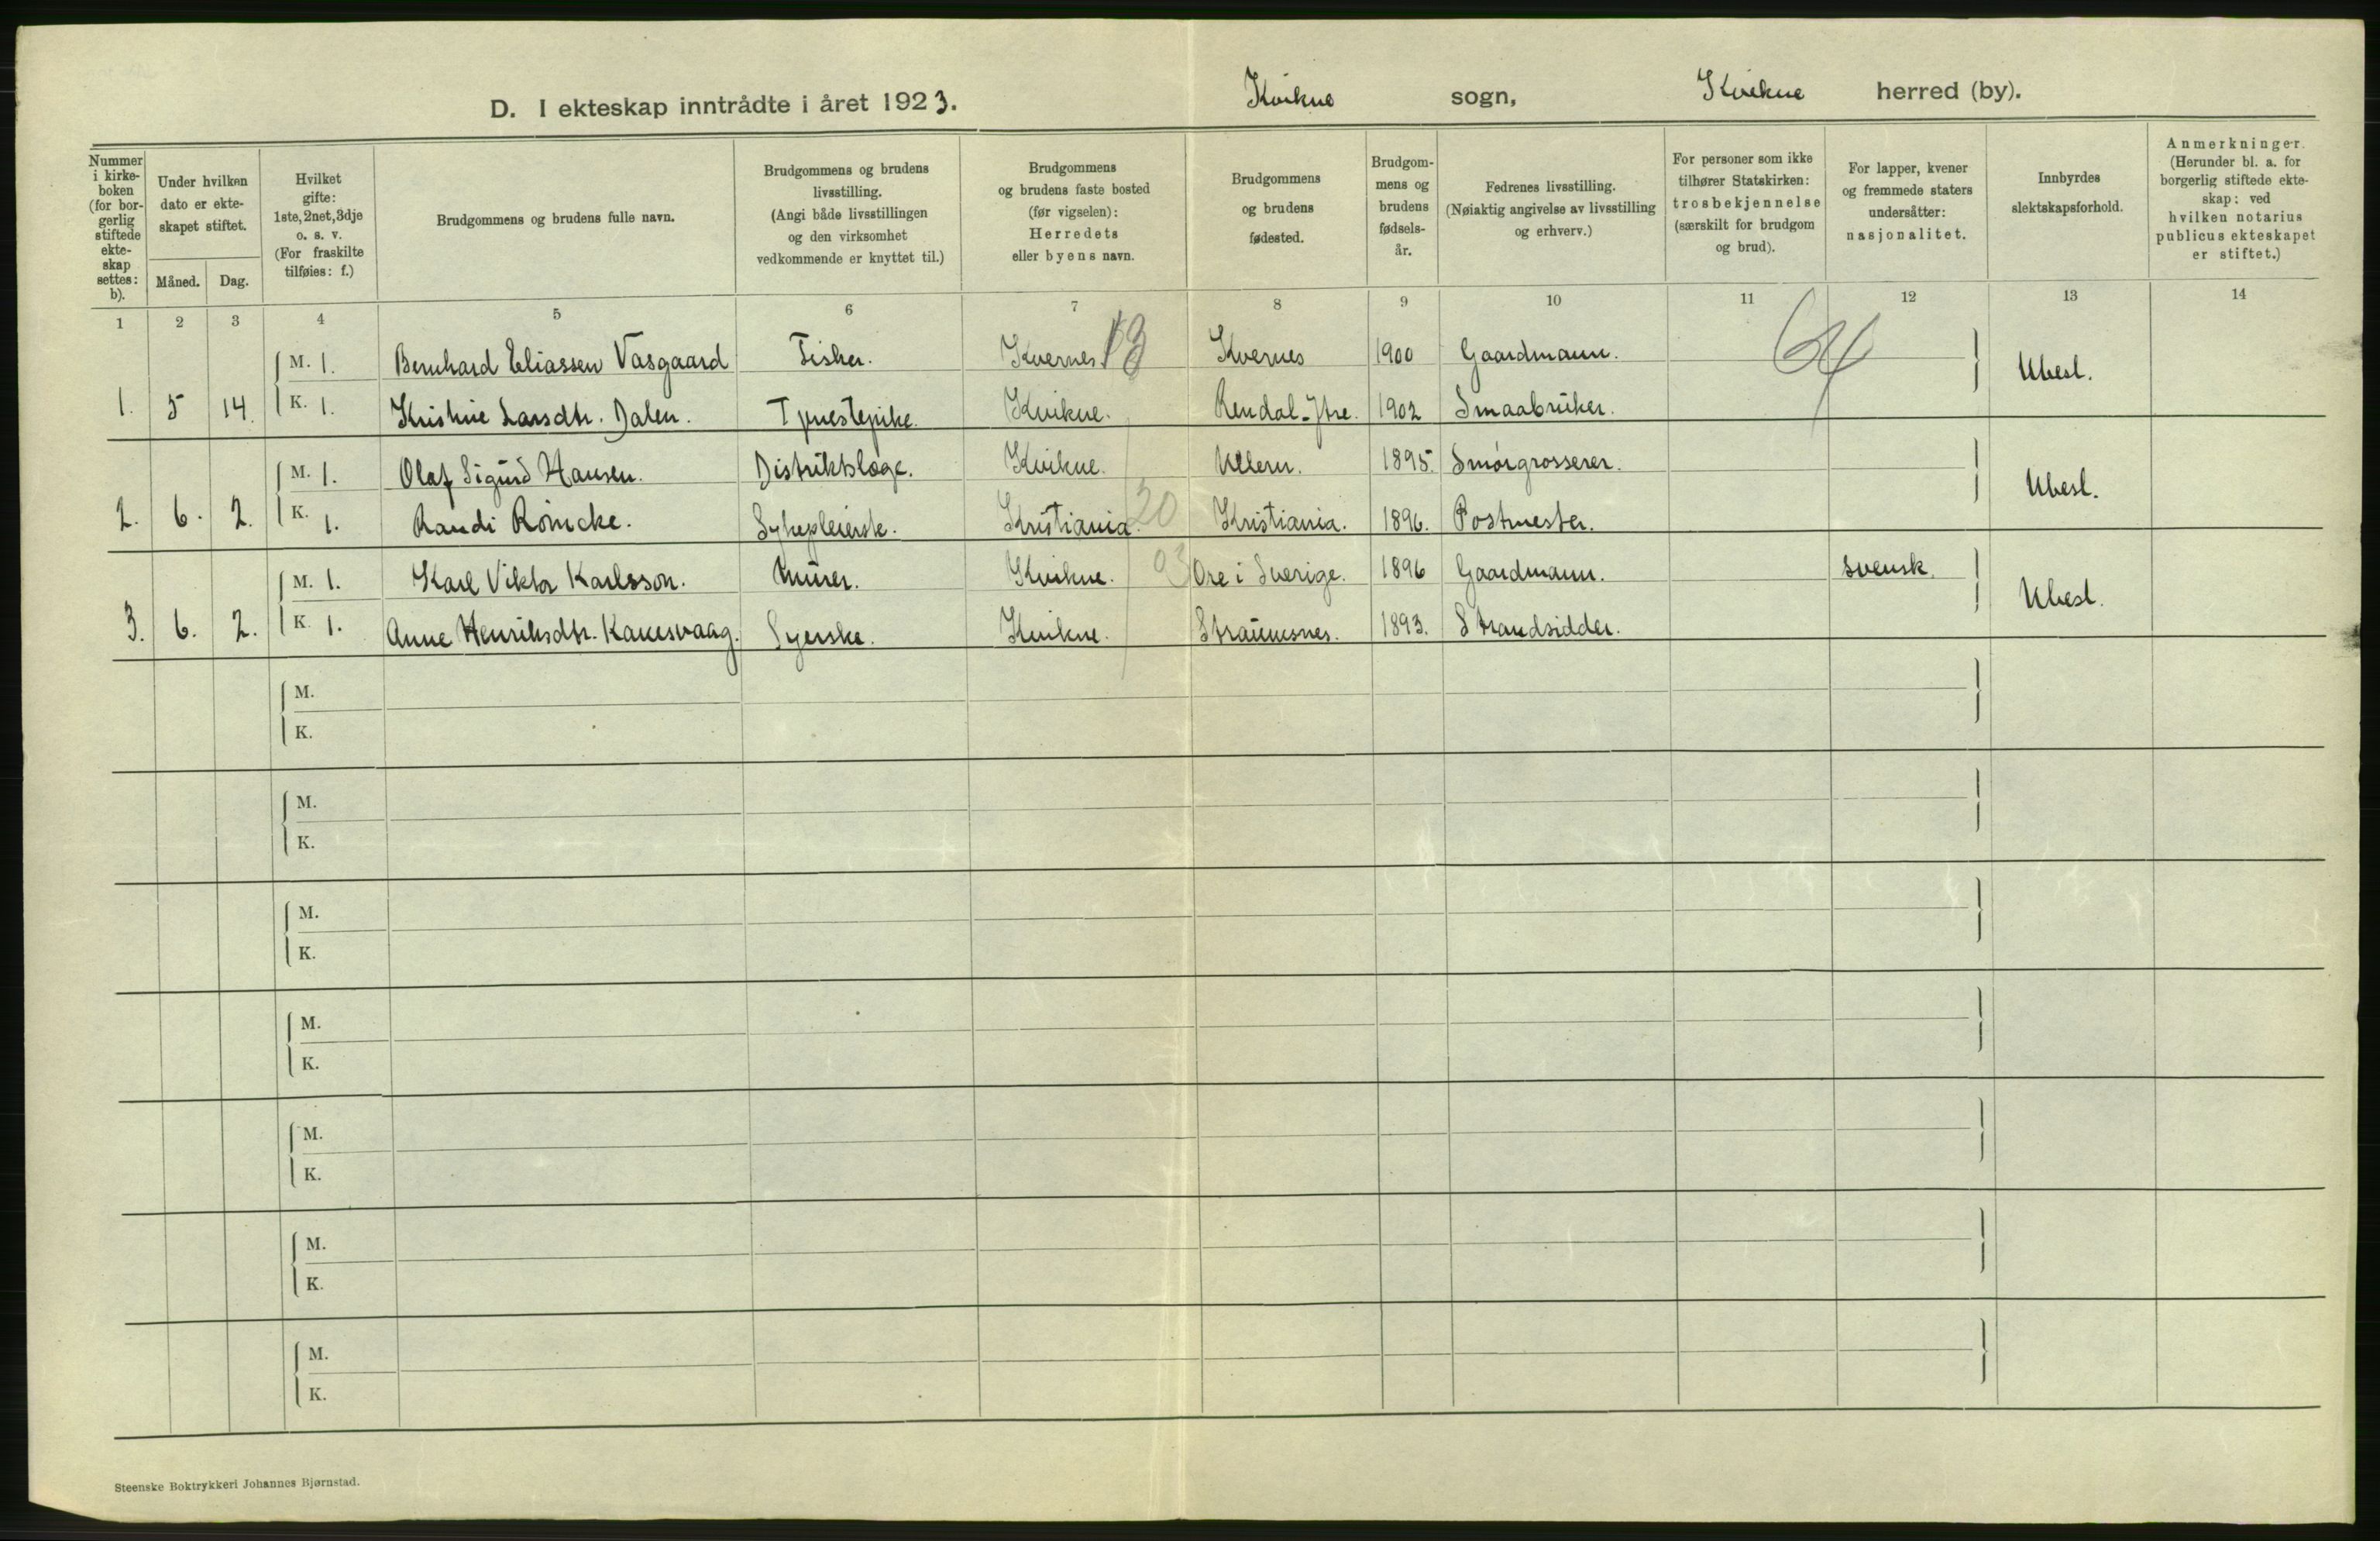 D. I ekteskap inntrådte i året 1923. Kvikne sogn, Kvikne herred (by).
Nummer i kirkeboken (for borgerlig stiftede ekteskap settes: b).
Under hvilken dato er ekteskapet stiftet.
Måned. Dag.
Hvilket gifte: 1ste, 2net, 3dje o. s. v. (For fraskilte tilføies: f.)
Brudgommens og brudens fulle navn.
Brudgommens og brudens livsstilling. (Angi både livsstillingen og den virksomhet vedkommende er knyttet til.)
Brudgommens og brudens faste bosted (før vigselen): Herredets eller byens navn.
Brudgommens og brudens fødested.
Brudgommens og brudens fødselsår.
Fedrenes livsstilling. (Nøiaktig angivelse av livsstilling og erhverv.)
For personer som ikke tilhører Statskirken: trosbekjennelse (særskilt for brudgom og brud).
For lapper, kvener og fremmede staters undersåtter: nasjonalitet.
Innbyrdes slektskapsforhold.
Anmerkninger. (Herunder bl. a. for borgerlig stiftede ekteskap: ved hvilken notarius publicus ekteskapet er stiftet.)
1 2 3 4 5 6 7 8 9 10 11 12 13 14
M. 1. Bernhard Eliassen Vasgaard Fisker. Kvernes 13 Kvernes 1900 Gaardmann. 64
1. 5 14. K. 1. Kristine Larsdtr. Dalen. Tjenestepike. Kvikne. Rendal-Ytre. 1902 Smaabruker. Ubesl.
M. 1. Olaf Sigurd Hansen. Distriktslæge. Kvikne. Ullern. 1895. Smørgrosserer.
2. 6. 2. K. 1. Randi Röincke. Sykepleierske. Kristiania. 20 Kristiania. 1896. Postmester. Ubesl.
M. 1. Karl Viktor Karlsson. Murer. Kvikne. 03 Ore i Sverige. 1896 Gaardmann. svensk.
3. 6. 2. K. 1. Anne Henriksdtr. Kanesvaag. Syerske. Kvikne. Straumsnes. 1893. Strandsidder. Ubesl.
M.
K.
M.
K.
M.
K.
M.
K.
M.
K.
M.
K.
M.
K.
Steenske Boktrykkeri Johannes Bjørnstad.